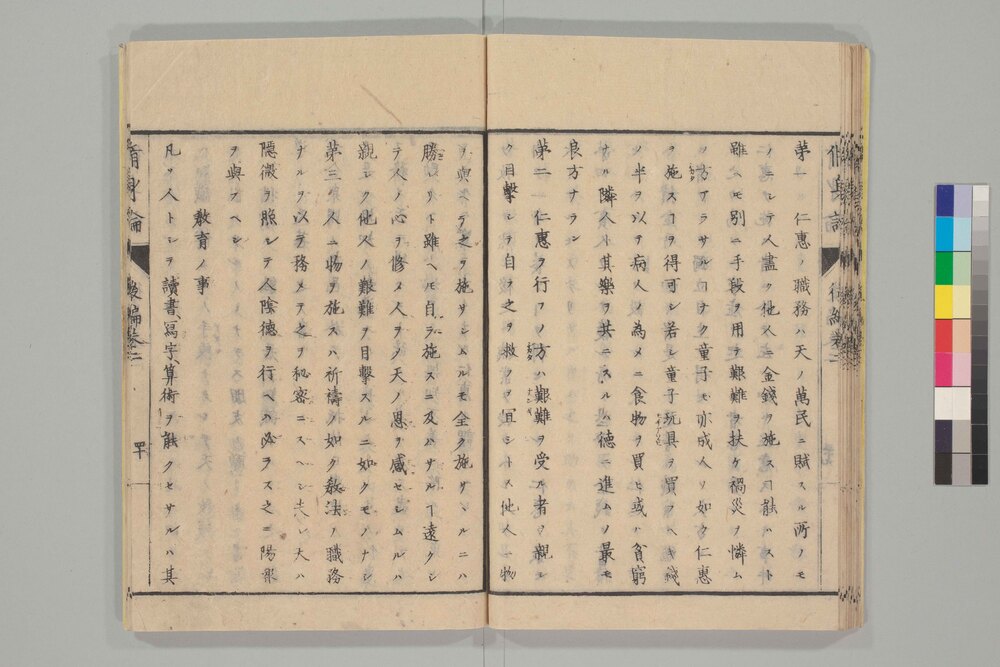 第一 仁惠ノ職務ハ天ノ萬民ニ賦スル所ノモ
ノニシテ人盡ク他人ニ金錢ヲ施スヿ能ハスト
雖ヘモ別ニ手段ヲ用テ艱難ヲ扶ケ禍災ヲ憐ム
ノ方アラサルヿナク童子モ亦成人ノ如ク仁惠
ヲ施スヿヲ得可シ若シ童子玩具ヲ買フヘキ錢
ノ半ヲ以テ病人ノ為メニ食物ヲ買ヒ或ハ貧窮
ナル隣人ト其樂ヲ共ニスルハ德ニ進ムノ最モ
良方ナラン
第二 仁惠ヲ行フノ方ハ艱難ヲ受ル者ヲ親シ
ク目擊シテ自ラ之ヲ救フヲ宜シトス他人ニ物
ヲ與ヘテ之ヲ施サシムルモ全ク施サヽルニハ
勝レリト雖ヘモ自ラ施スニ及ハサルヿ遠クシ
テ人ノ心ヲ修メ人ヲ〆天ノ恩ヲ感セシムルハ
親シク他人ノ艱難ヲ目擊スルニ如クモノナシ
第三 人ニ物ヲ施スハ祈禱ノ如ク敎法ノ職務
ナルヲ以テ務メテ之ヲ秘密ニスヘシ夫レ天ハ
隱微ヲ照シテ人陰德ヲ行ヘハ必ラス之ニ陽報
ヲ與フヘシ
敎育ノ事
凡ソ人トシテ讀書、寫字、算術ヲ能クセサルハ其
脩身論 後編卷二 四十